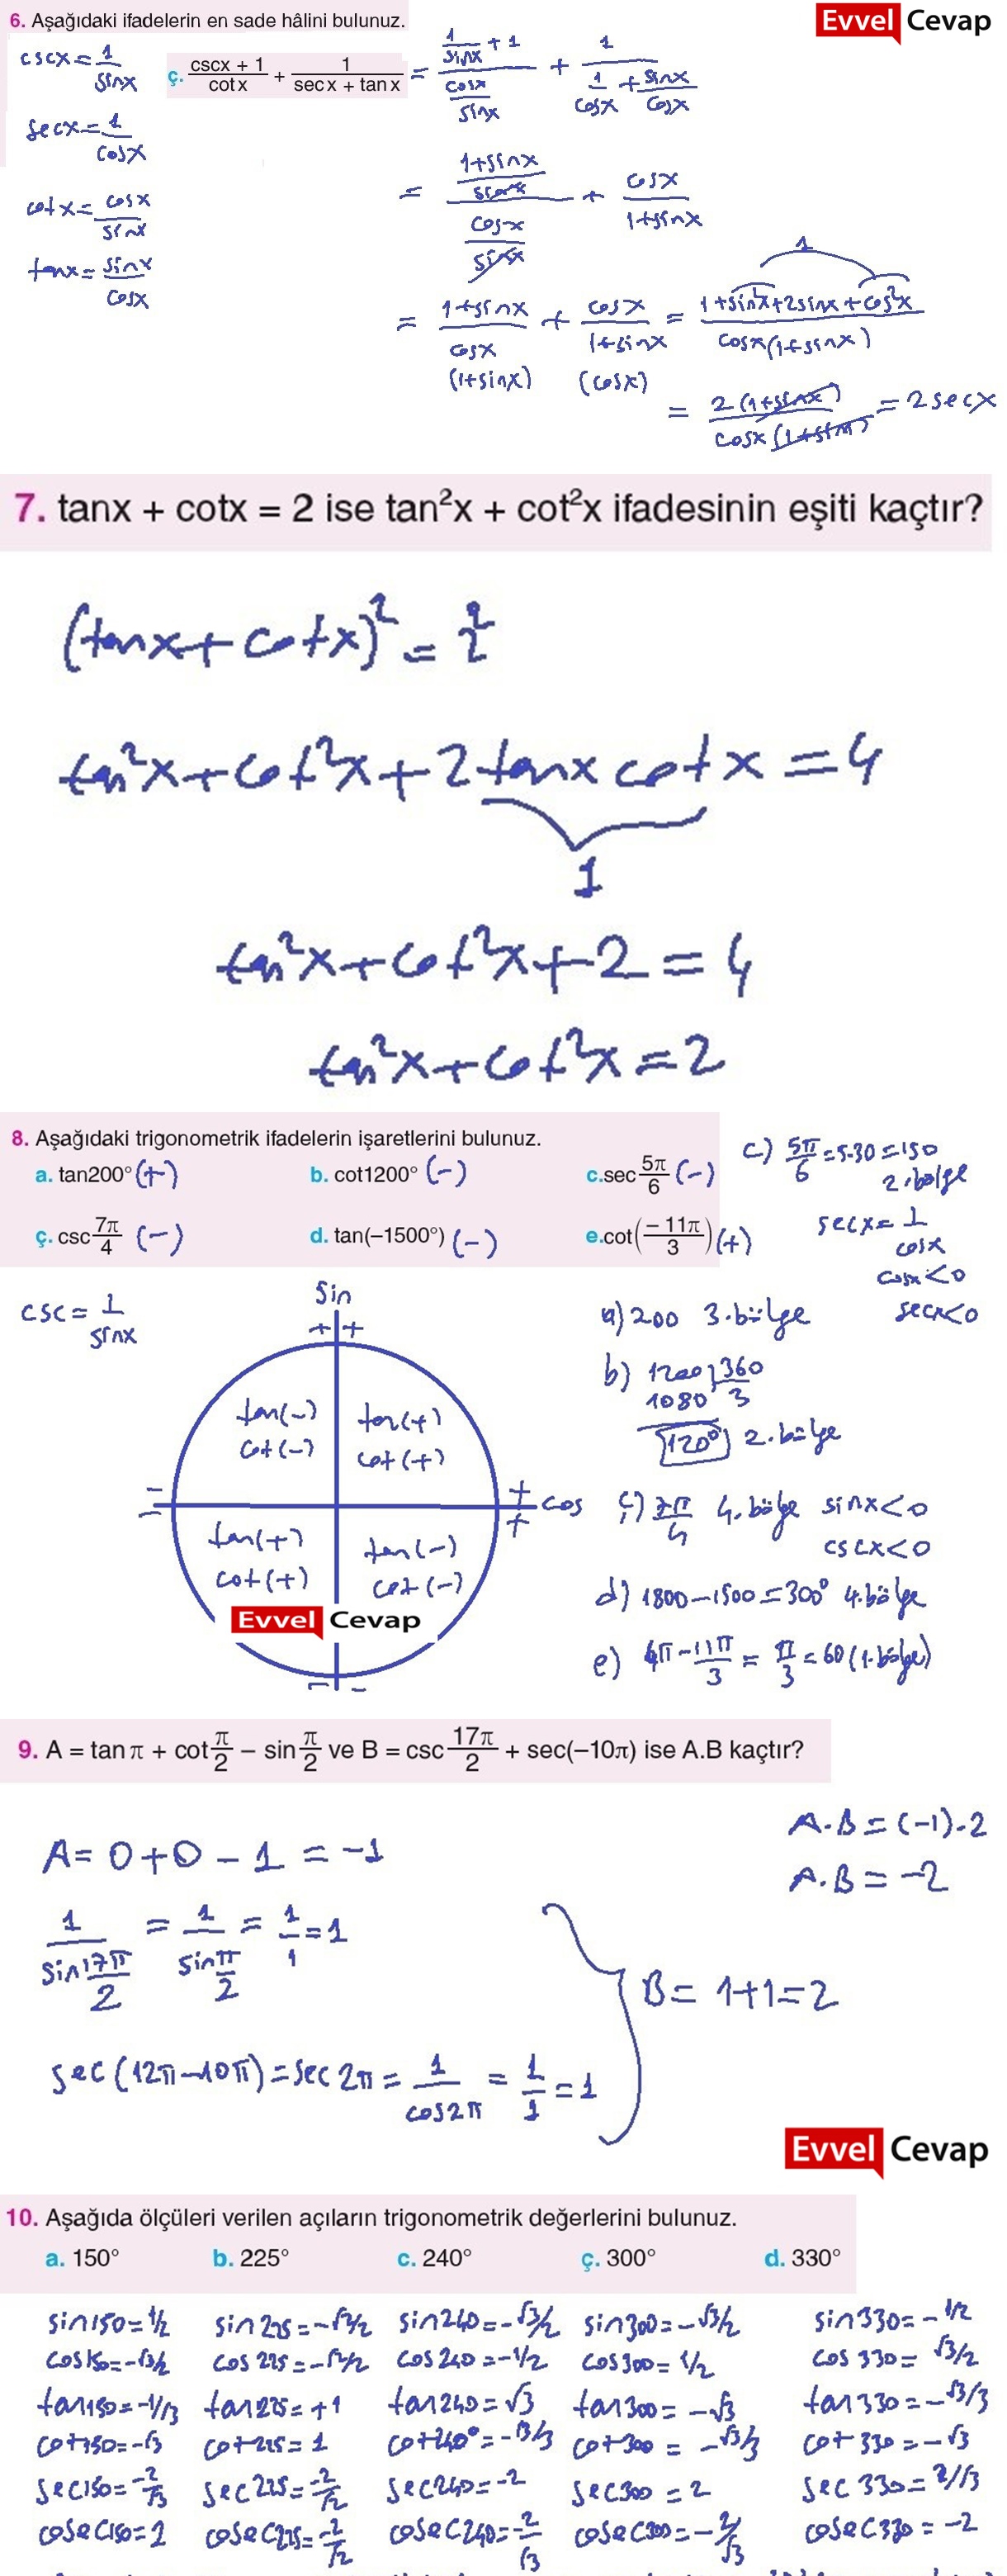 Evvel Cevap
6. Aşağıdaki ifadelerin en sade hâlini bulunuz.
cscx = 1/sinx
secx = 1/cosx
cotx = cosx/sinx
tanx = sinx/cosx
ç. (cscx + 1)/(cotx) + 1/(secx + tanx) = (1/sinx + 1)/(cosx/sinx) + 1/(1/cosx + sinx/cosx)
= ((1+sinx)/sinx)/(cosx/sinx) + cosx/(1+sinx)
1
= (1+sinx)/cosx + cosx/(1+sinx) = (1+sin²x+2sinx+cos²x)/(cosx(1+sinx))
(1+sinx) (cosx)
= 2(1+sinx)/(cosx(1+sinx)) = 2secx
7. tanx + cotx = 2 ise tan²x + cot²x ifadesinin eşiti kaçtır?
(tanx+cotx)² = 2²
tan²x+cot²x+2tanxcotx=4
1
tan²x+cot²x+2=4
tan²x+cot²x=2
8. Aşağıdaki trigonometrik ifadelerin işaretlerini bulunuz.
a. tan200° (+) b. cot1200° (-) c.sec 5π/6 (-)
ç. csc 7π/4 (-) d. tan(–1500°) (-) e.cot(–11π/3) (+)
c) 5π/6 = 5.30 = 150
2.bölge
secx = 1/cosx
cosx<0
secx<0
csc = 1/sinx
Sin
+ +
tan(-) tan(+)
cot(-) cot(+)
- + cos
- +
tan(+) tan(-)
cot(+) cot(-)
Evvel Cevap
- -
a) 200 3.bölge
b) 1200 360
1080 3
120° 2.bölge
ç) 7π/4 4.bölge sinx<0
cscx<0
d) 1800-1500=300° 4.bölge
e) 4π-11π/3 = π/3 = 60 (1.bölge)
9. A = tanπ + cot π/2 – sin π/2 ve B = csc 17π/2 + sec(–10π) ise A.B kaçtır?
A= 0+0-1 = -1
A.B = (-1).2
A.B = -2
1/sin 17π/2 = 1/sin π/2 = 1/1 = 1
B= 1+1=2
sec(12π-10π)=sec2π = 1/cos2π = 1/1 = 1
Evvel Cevap
10. Aşağıda ölçüleri verilen açıların trigonometrik değerlerini bulunuz.
a. 150° b. 225° c. 240° ç. 300° d. 330°
sin150=1/2 sin225=-√2/2 sin240=-√3/2 sin300=-√3/2 sin330=-1/2
cos150=-√3/2 cos225=-√2/2 cos240=-1/2 cos300=1/2 cos330=√3/2
tan150=-1/√3 tan225=+1 tan240=√3 tan300=-√3 tan330=-√3/3
cot150=-√3 cot225=1 cot240°=-√3/3 cot300=-√3/3 cot330=-√3
sec150=-2/√3 sec225=-2/√2 sec240=-2 sec300=2 sec330=2/√3
cosec150=2 cosec225=-2/√2 cosec240=-2/√3 cosec300=-2/√3 cosec330=-2